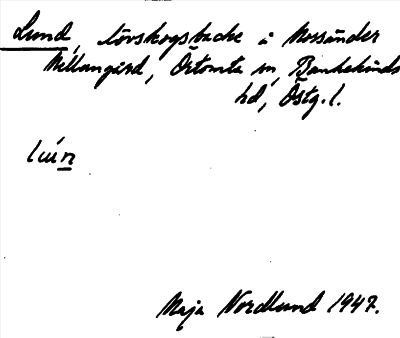 Lund, lövskogsbacke i Mossänder
Mellangård, Örtomta sn, Bankekinds
hd, Östg. l.
lún
Maja Nordlund 1947.